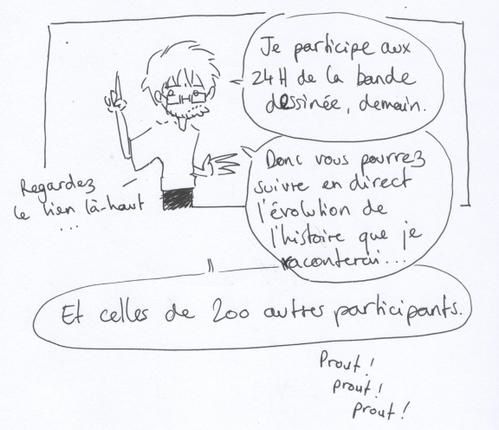 Je participe aux
24H de la bande
dessinée, demain.
Donc vous pourrez
suivre en direct
l'évolution de
l'histoire que je
raconterai...
Regardez
le lien là-haut
...
Et celles de 200 autres participants.
Prout!
prout!
prout!